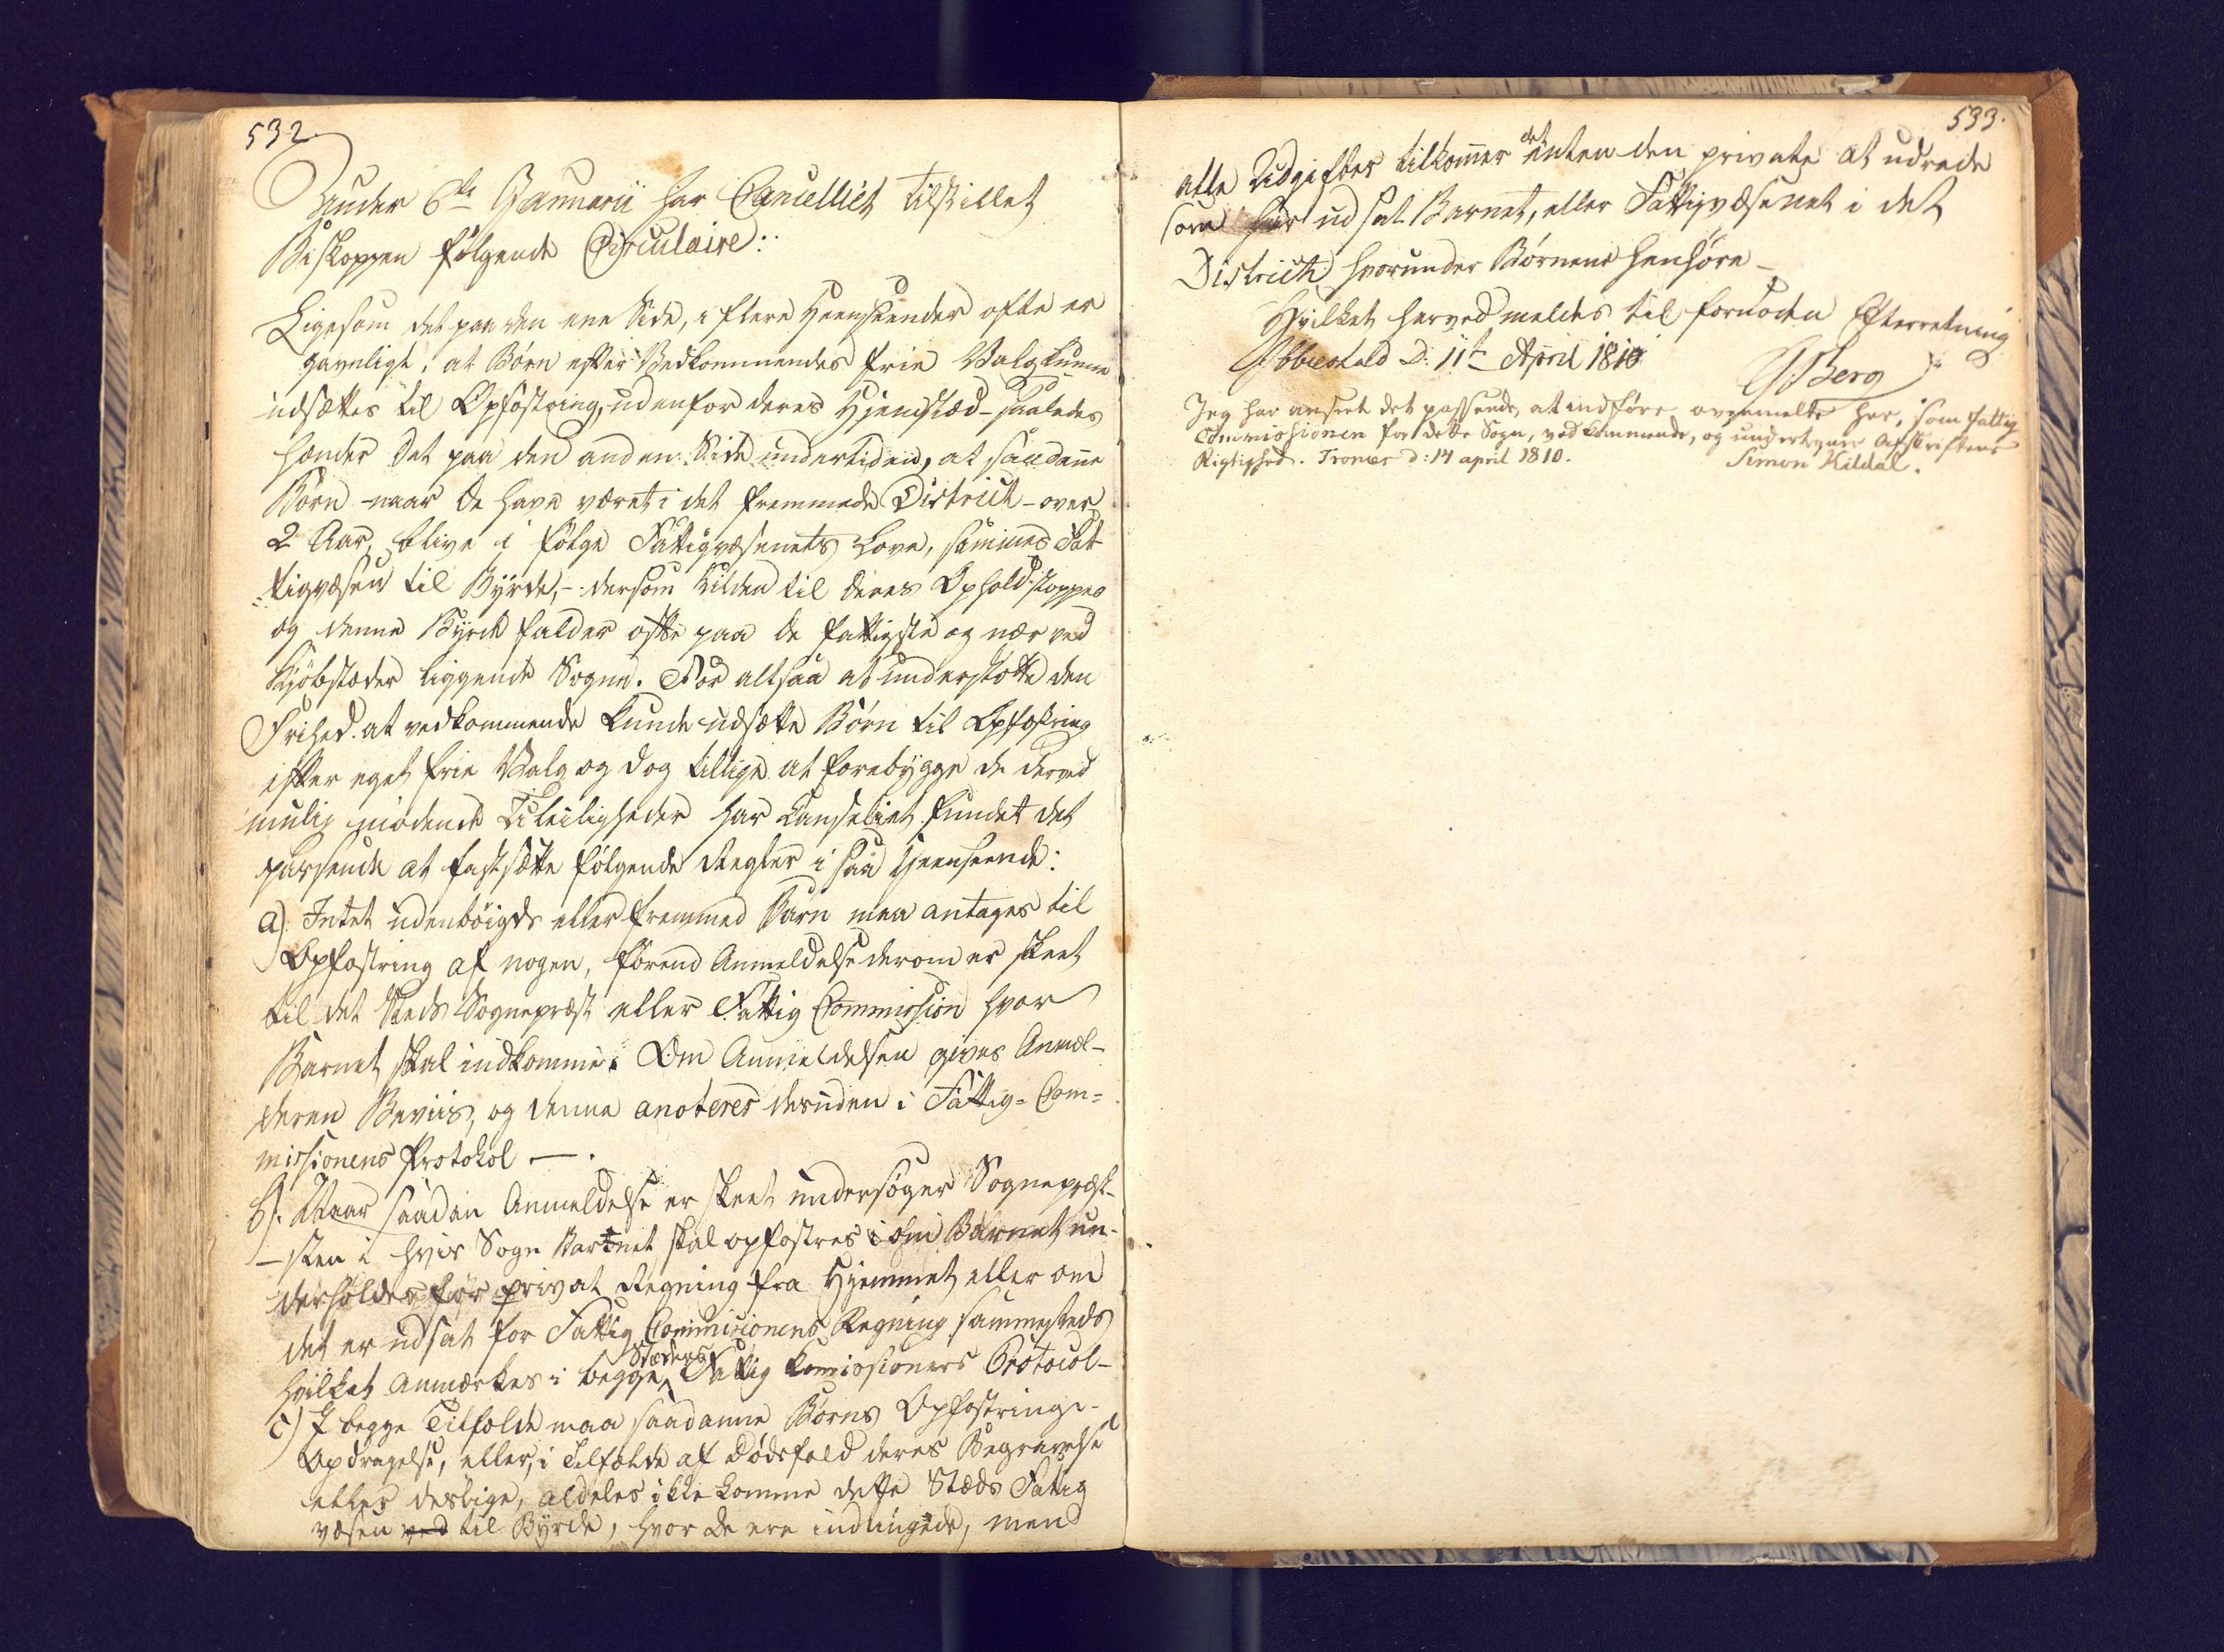 532
Under 6te Januarii har Cancelliet tilstillet
Biskoppen følgende Circulaire:
Ligesom det paa den ene Side, i flere Heenseender ofte er
gavnligt, at Børn efter Vedkommendes frie Valg kunne
udsættes til Opfostring, udenfor deres Hjemstæd – saaledes
hænder det paa den anden Side undertiden, at saadanne
Børn – naar de have været i det fremmede District – over
2 Aar, blive i følge Fattigvæsenets Love, sammes Fat-
tigvæsen til Byrde, – dersom Kilden til deres Ophold stoppes
og denne Byrde falder ofte paa de fattigste og nær ved
Kjöbstæder liggende Sogne. For altsaa at understøtte den
Frihed at vedkommende kunde udsætte Børn til Opfostring
efter eget frie Valg og dog tillige at forebygge de derved
mulig mødende Uleiligheder har Canseliet fundet det
passende at fastsætte følgende Regler i saa Heenseende:
a). Intet udenbøigds eller fremmed Barn maa antages til
Opfostring af nogen, førend Anmeldelse derom er skeet
til det Steds Sognepræst eller Fattig Commission hvor
Barnet skal indkomme. Om Anmeldelsen gives Anmel-
deren Beviis, og denne anoteres desuden i Fattig-Com=
missionens Protokol —.
b). Naar saadan Anmeldelse er skeet undersøger Sognepræst-
–sten i hvis Sogn Barnet skal opfostres om Barnet un-
derholdes for privat Regning fra Hjemmet eller om
det er udsat for Fattig Commisionens Regning sammesteds
hvilket anmærkes i begge Stæders Fattig Komissioners Protocol –
c) I begge Tilfælde maa saadanne Børns Opfostrings-
Opdragelse, eller, i Tilfælde af Dødsfald deres Begravelse
eller deslige, aldeles ikke komme dette Stæds Fatig
væsen ved til Byrde, hvor de ere indtingede, men
533.
alle Udgifter tilkommer det enten den private at udrede
som har udsat Barnet, eller Fattigvæsenet i det
District hvorunder Børnene henhøre –
Hvilket herved meldes til fornøden Efterretning
Ibbestad D: 11te April 1810
G: Berg
Jeg har anseet det passende, at indføre ovenmelte her, som Fattig
Commissionen for dette Sogn, vedkommende, og undertegner Afskriftens
Rigtighed. Tronæs d: 14 april 1810.
Simon Kildal.